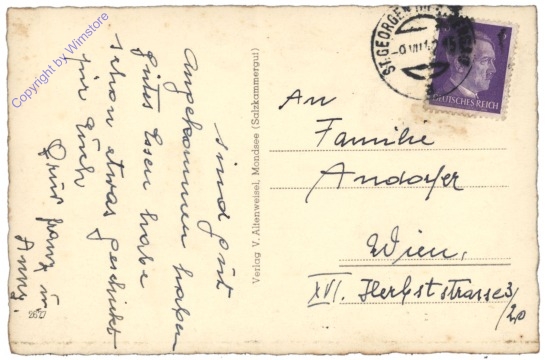 Copyright by Wimstore
sind gut
angekommen haben
gutes Essen habe
schon etwas geschickt
für Euch
Gruß Franz u
Anny.
2627
Verlag V. Altenweisel, Mondsee (Salzkammergut)
ST. GEORGEN IM
DEUTSCHES REICH
An
Familie
Andorfer
Wien,
XVI. Herbststrasse 3/
20